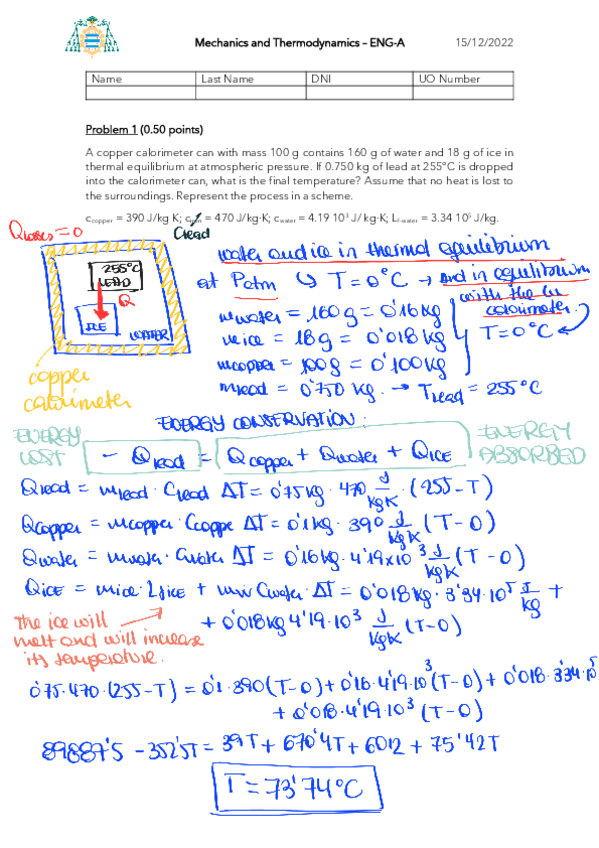 Mechanics and Thermodynamics – ENG-A 15/12/2022
Name Last Name DNI UO Number
Problem 1 (0.50 points)
A copper calorimeter can with mass 100 g contains 160 g of water and 18 g of ice in
thermal equilibrium at atmospheric pressure. If 0.750 kg of lead at 255°C is dropped
into the calorimeter can, what is the final temperature? Assume that no heat is lost to
the surroundings. Represent the process in a scheme.
c copper = 390 J/kg·K; c = 470 J/kg·K; c water = 4.19 10³ J/kg·K; L f-water = 3.34 10⁵ J/kg.
Q losses = 0
Clead
water and ice in thermal equilibrium
at Patm ↳ T = 0°C → and in equilibrium
with the Cu
calorimeter.
T = 0°C
255°C
LEAD
Q
ICE
WATER
copper
calorimeter
mwater = 160 g = 0'16 kg
mice = 18 g = 0'018 kg
mcopper = 100 g = 0'100 kg
mlead = 0'750 kg. → Tlead = 255°C
ENERGY CONSERVATION:
ENERGY
LOST
- Qlead = Qcopper + Qwater + QICE
ENERGY
ABSORBED
Qlead = mlead · Clead ΔT = 0'75 kg · 470 J/kgK · (255 - T)
Qcopper = mcopper · Ccoppe ΔT = 0'1 kg · 390 J/kgK (T - 0)
Qwater = mwater · Cwater ΔT = 0'16 kg · 4'19x10³ J/kgK (T - 0)
QICE = mice · Lfice + mice Cwater · ΔT = 0'018 kg · 3'34·10⁵ J/kg +
+ 0'018 kg 4'19·10³ J/kgK (T-0)
The ice will
melt and will increase
its temperature.
0'75·470·(255-T) = 0'1·390(T-0) + 0'16·4'19·10³(T-0) + 0'018·3'34·10⁵
+ 0'018·4'19·10³ (T-0)
89887'5 - 352'5T = 39T + 670'4T + 6012 + 75'42T
T = 73'74°C